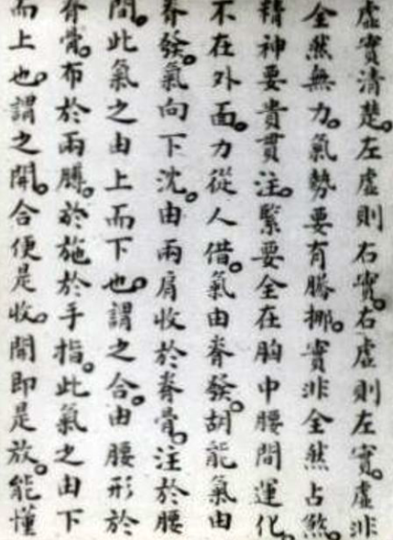 虛實清楚。左虛則右實。右虛則左實。虛非
全然無力。氣勢要有騰挪。實非全然占煞。
精神要貴貫注。緊要全在胸中腰間運化。
不在外面。力從人借。氣由脊發。胡能氣由
脊發。氣向下沈。由兩肩收於脊骨。注於腰
間。此氣之由上而下也。謂之合。由腰形於
脊骨。布於兩膊。於施於手指。此氣之由下
而上也。謂之開。合便是收。開即是放。能懂